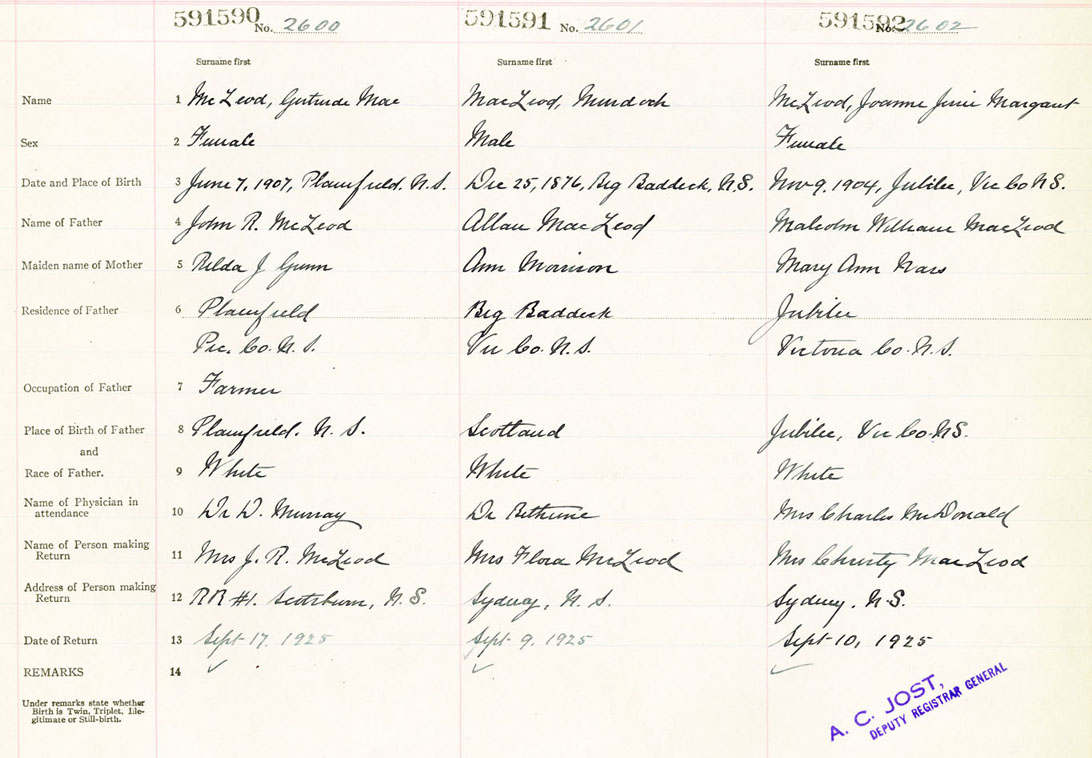 591590 No. 2600 591591 No. 2601 591592 No. 2602
Surname first Surname first Surname first
Name 1 McLeod, Gertrude Mae MacLeod, Murdoch McLeod, Joanne Jessie Margaret
Sex 2 Female Male Female
Date and Place of Birth 3 June 7, 1907, Plainfield. N.S. Dec 25, 1876, Big Baddeck, N.S. Nov 9. 1904, Jubilee, Vic Co N.S.
Name of Father 4 John R. McLeod Allan MacLeod Malcolm William MacLeod
Maiden name of Mother 5 J Gunn Ann Morrison Mary Ann
Residence of Father 6 Plainfield Big Baddeck Jubilee
Pic. Co. N.S. Vic Co. N.S. Victoria Co. N.S.
Occupation of Father 7 Farmer
Place of Birth of Father 8 Plainfield. N.S. Scotland Jubilee, Vic Co. N.S.
and
Race of Father. 9 White White White
Name of Physician in
attendance 10 Dr D. Murray Dr Bethune Mrs Charles McDonald
Name of Person making
Return 11 Mrs J. R. McLeod Mrs Flora McLeod Mrs Christy MacLeod
Address of Person making
Return 12 RR #1. Scotsburn, N.S. Sydney, N.S. Sydney. N.S.
Date of Return 13 Sept 17. 1925 Sept 9. 1925 Sept 10, 1925
REMARKS 14 ✓ ✓ ✓
Under remarks state whether
Birth is Twin, Triplet, Ille-
gitimate or Still-birth.
A. C. JOST,
DEPUTY REGISTRAR GENERAL